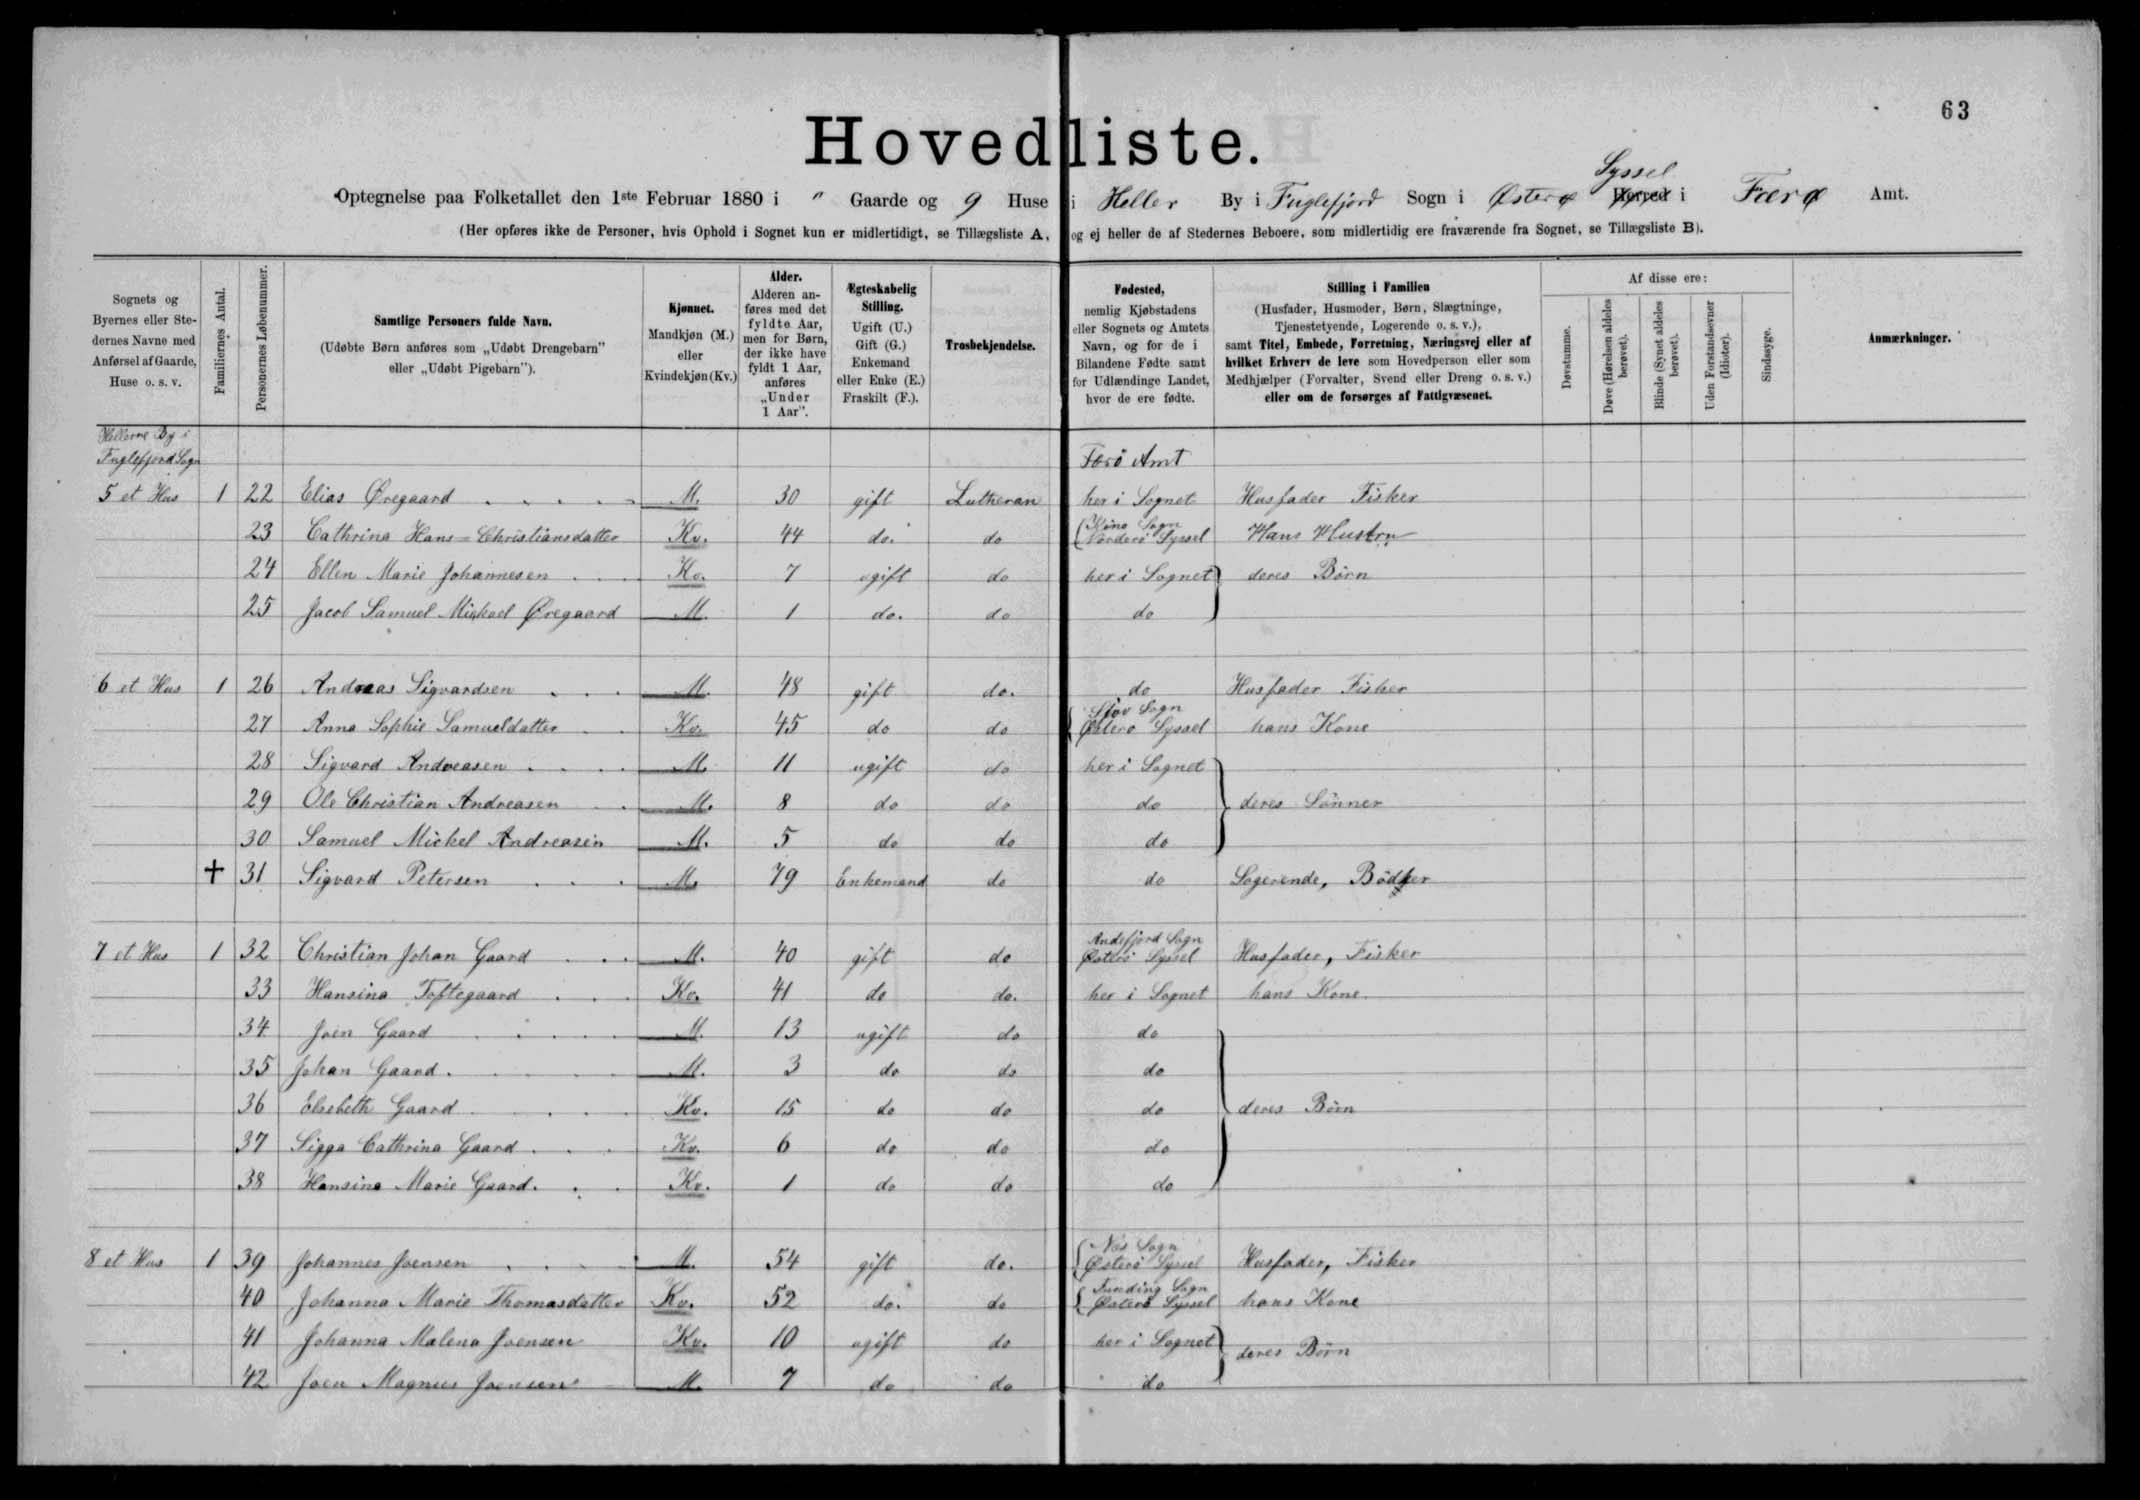 63
Hovedliste.
Optegnelse paa Folketallet den 1ste Februar 1880 i " Gaarde og 9 Huse i Heller By i Fuglefjord Sogn i Østerø Herred Syssel i Færø Amt.
(Her opføres ikke de Personer, hvis Ophold i Sognet kun er midlertidigt, se Tillægsliste A, og ej heller de af Stedernes Beboere, som midlertidig ere fraværende fra Sognet, se Tillægsliste B).
Sognets og Byernes eller Stedernes Navne med Anførsel af Gaarde, Huse o. s. v.
Familiernes Antal.
Personernes Løbenummer.
Samtlige Personers fulde Navn.
(Udøbte Børn anføres som „Udøbt Drengebarn" eller „Udøbt Pigebarn").
Kjønnet.
Mandkjøn (M.) eller Kvindekjøn (Kv.)
Alder.
Alderen anføres med det fyldte Aar, men for Børn, der ikke have fyldt 1 Aar, anføres „Under 1 Aar".
Ægteskabelig Stilling.
Ugift (U.) Gift (G.) Enkemand eller Enke (E.) Fraskilt (F.).
Trosbekjendelse.
Fødested,
nemlig Kjøbstadens eller Sognets og Amtets Navn, og for de i Bilandene Fødte samt for Udlændinge Landet, hvor de ere fødte.
Stilling i Familien
(Husfader, Husmoder, Børn, Slægtninge, Tjenestetyende, Logerende o. s. v.), samt Titel, Embede, Forretning, Næringsvej eller af hvilket Erhverv de leve som Hovedperson eller som Medhjælper (Forvalter, Svend eller Dreng o. s. v.) eller om de forsørges af Fattigvæsenet.
Af disse ere:
Døvstumme.
Døve (Hørelsen aldeles berøvet).
Blinde (Synet aldeles berøvet).
Uden Forstandsevner (Idioter).
Sindssyge.
Anmærkninger.
Hellerne By i
Fuglefjord Sogn Færö Amt
5 et Hus 1 22 Elias Øregaard M. 30 gift Lutheran her i Sognet Husfader Fisker
23 Cathrina Hans=Christiansdatter Kv. 44 do. do Sogn Norderö Syssel Hans Hustru
24 Ellen Marie Johannesen Kv. 7 ugift do her i Sognet deres Börn
25 Jacob Samuel Mickael Øregaard M. 1 do. do do
6 et Hus 1 26 Andreas Sigvardsen M. 48 gift do. do Husfader Fisker
27 Anna Sophie Samueldatter Kv. 45 do do Sjov Sogn Østerö Syssel hans Kone
28 Sigvard Andreasen M. 11 ugift do her i Sognet
29 Ole Christian Andreasen M. 8 do do do deres Sönner
30 Samuel Mickel Andreasen M. 5 do do do
+ 31 Sigvard Petersen M. 79 Enkemand do do Logerende, Bödker
7 et Hus 1 32 Christian Johan Gaard M. 40 gift do Andefjord Sogn Østerö Syssel Husfader, Fisker
33 Hansina Toftegaard Kv. 41 do do. her i Sognet hans Kone
34 Joen Gaard M. 13 ugift do do
35 Johan Gaard M. 3 do do do
36 Elsebeth Gaard Kv. 15 do do do deres Börn
37 Sigga Cathrina Gaard Kv. 6 do do do
38 Hansina Marie Gaard Kv. 1 do do do
8 et Hus 1 39 Johannes Joensen M. 54 gift do. Næs Sogn Østerö Syssel Husfader, Fisker
40 Johanna Marie Thomasdatter Kv. 52 do. do Funding Sogn Østerö Syssel hans Kone
41 Johanna Malena Joensen Kv. 10 ugift do her i Sognet deres Börn
42 Joen Magnus Joensen M. 7 do do do